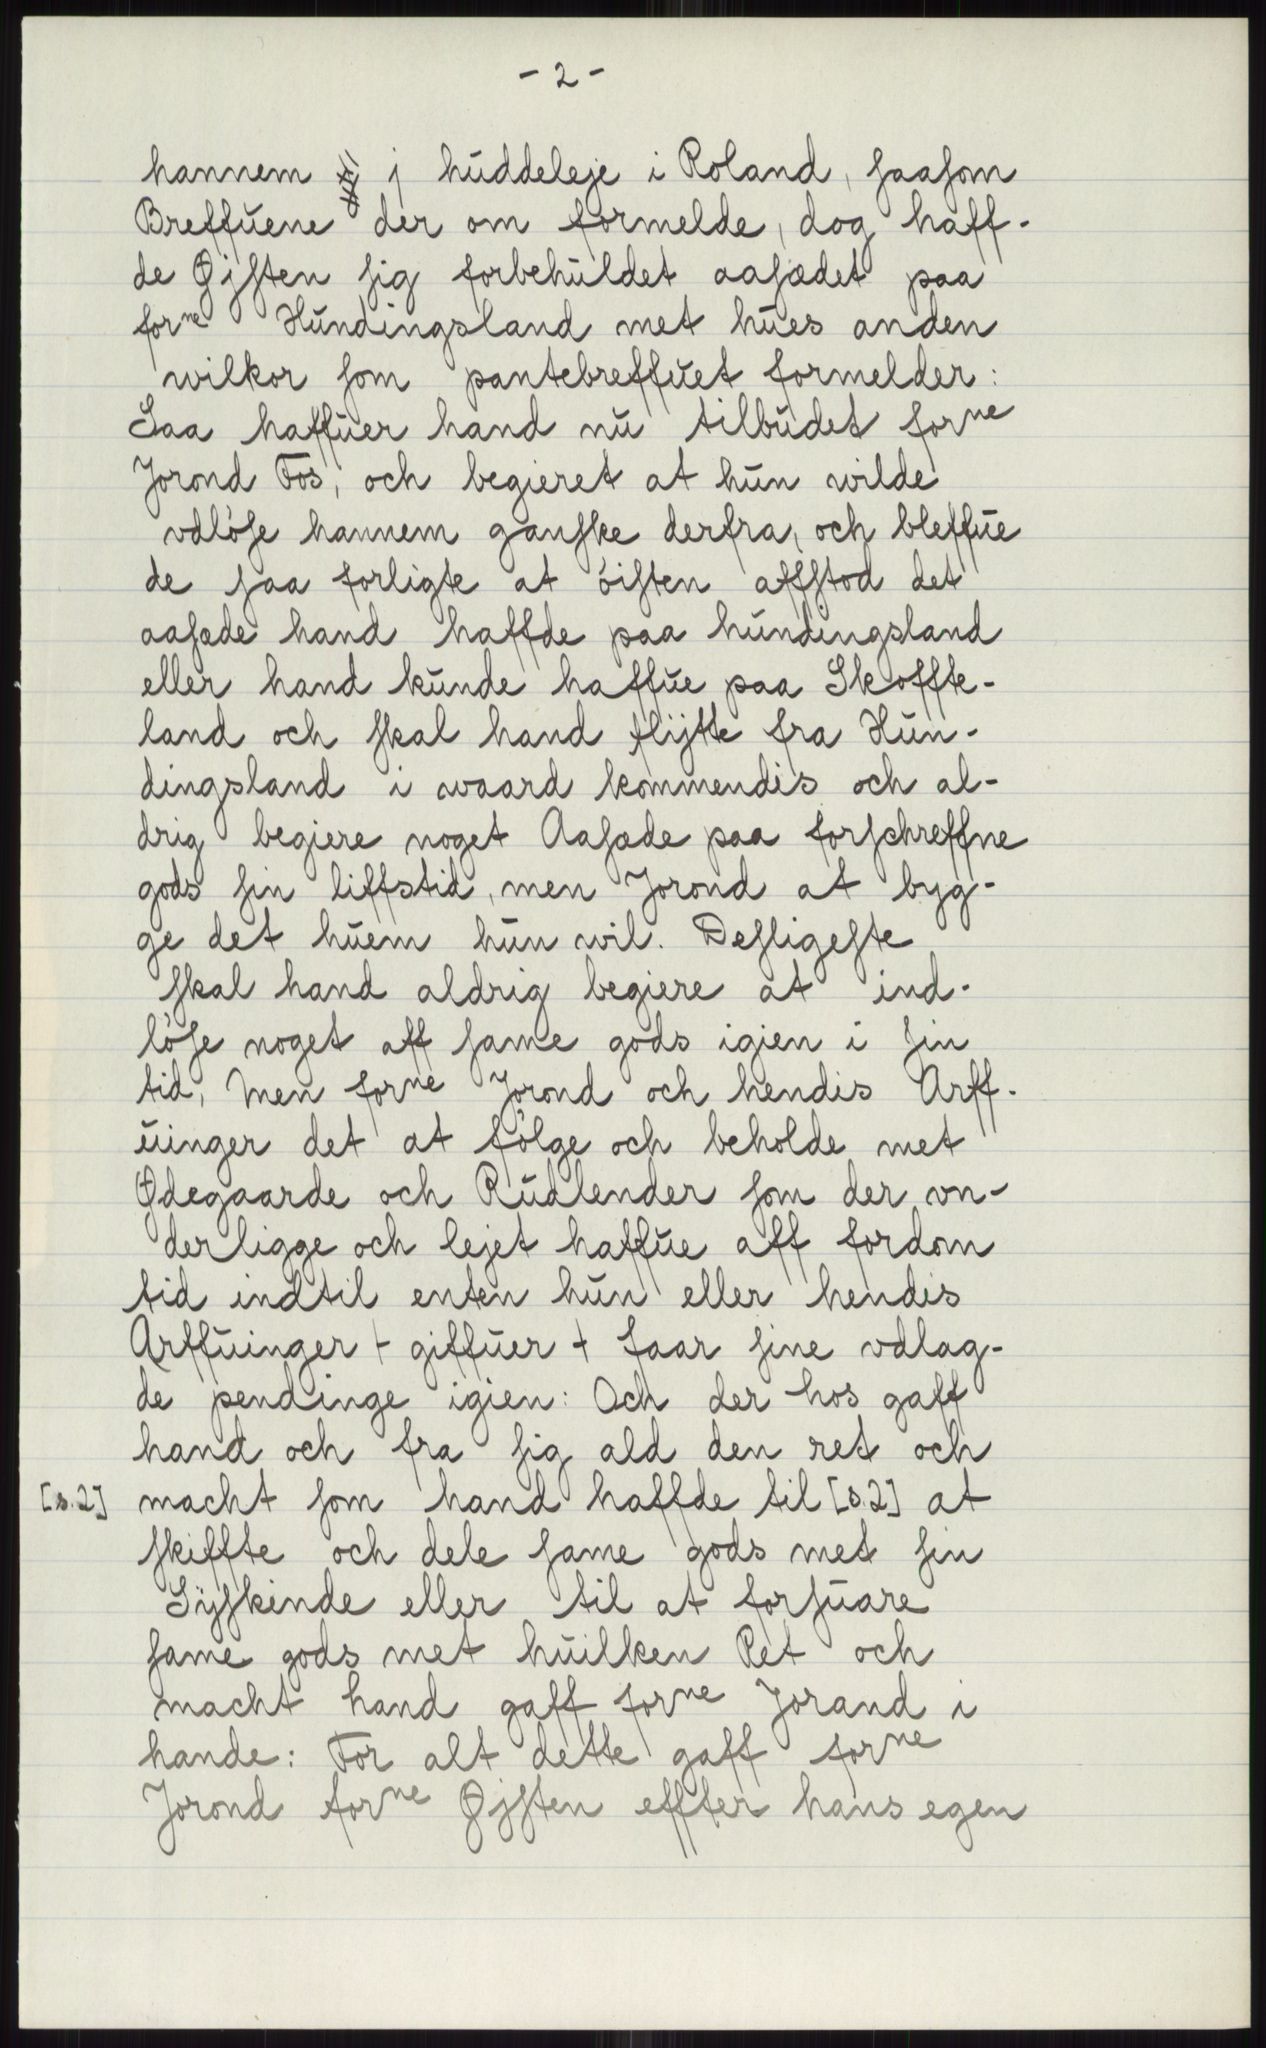 - 2 -
hannem j huddeleje i Roland, saasom
Breffuene der om formelde, dog haff-
de Øjsten sig forbehuldet aasædet paa
forne Hundingsland met hues anden
wilkor som pantebreffuet formelder:
Saa haffuer hand nu tilbudet forne
Jorond Fos, och begieret at hun wilde
vdløse hannem ganske derfra, och bleffue
de saa forligte at øisten affstod det
aasæde hand haffde paa hundingsland
eller hand kunde haffue paa Skoffte-
land och skal hand flijtte fra Hun-
dingsland i waard kommendis och al-
drig begiere noget Aasæde paa forschreffne
gods sin liffstid, men Jorond at byg-
ge det huem hun wil. Desligeste
skal hand aldrig begiere at ind-
løse noget aff same gods igien i sin
tid, Men forne Jorond och hendis Arff-
uinger det at følge och beholde met
Ødegaarde och Rudlender som der vn-
derligge och lejet haffue aff fordom
tid indtil enten hun eller hendis
Arffuinger + giffuer + faar sine vdlag-
de pendinge igien: Och der hos gaff
hand och fra sig ald den ret och
[s.2] macht som hand haffde til [s.2] at
skiffte och dele same gods met sin
Sÿskinde eller til at forsuare
same gods met huilken Ret och
macht hand gaff forne Jorand i
hande: For alt dette gaff forne
Jorond forne Øjsten effter hans egen